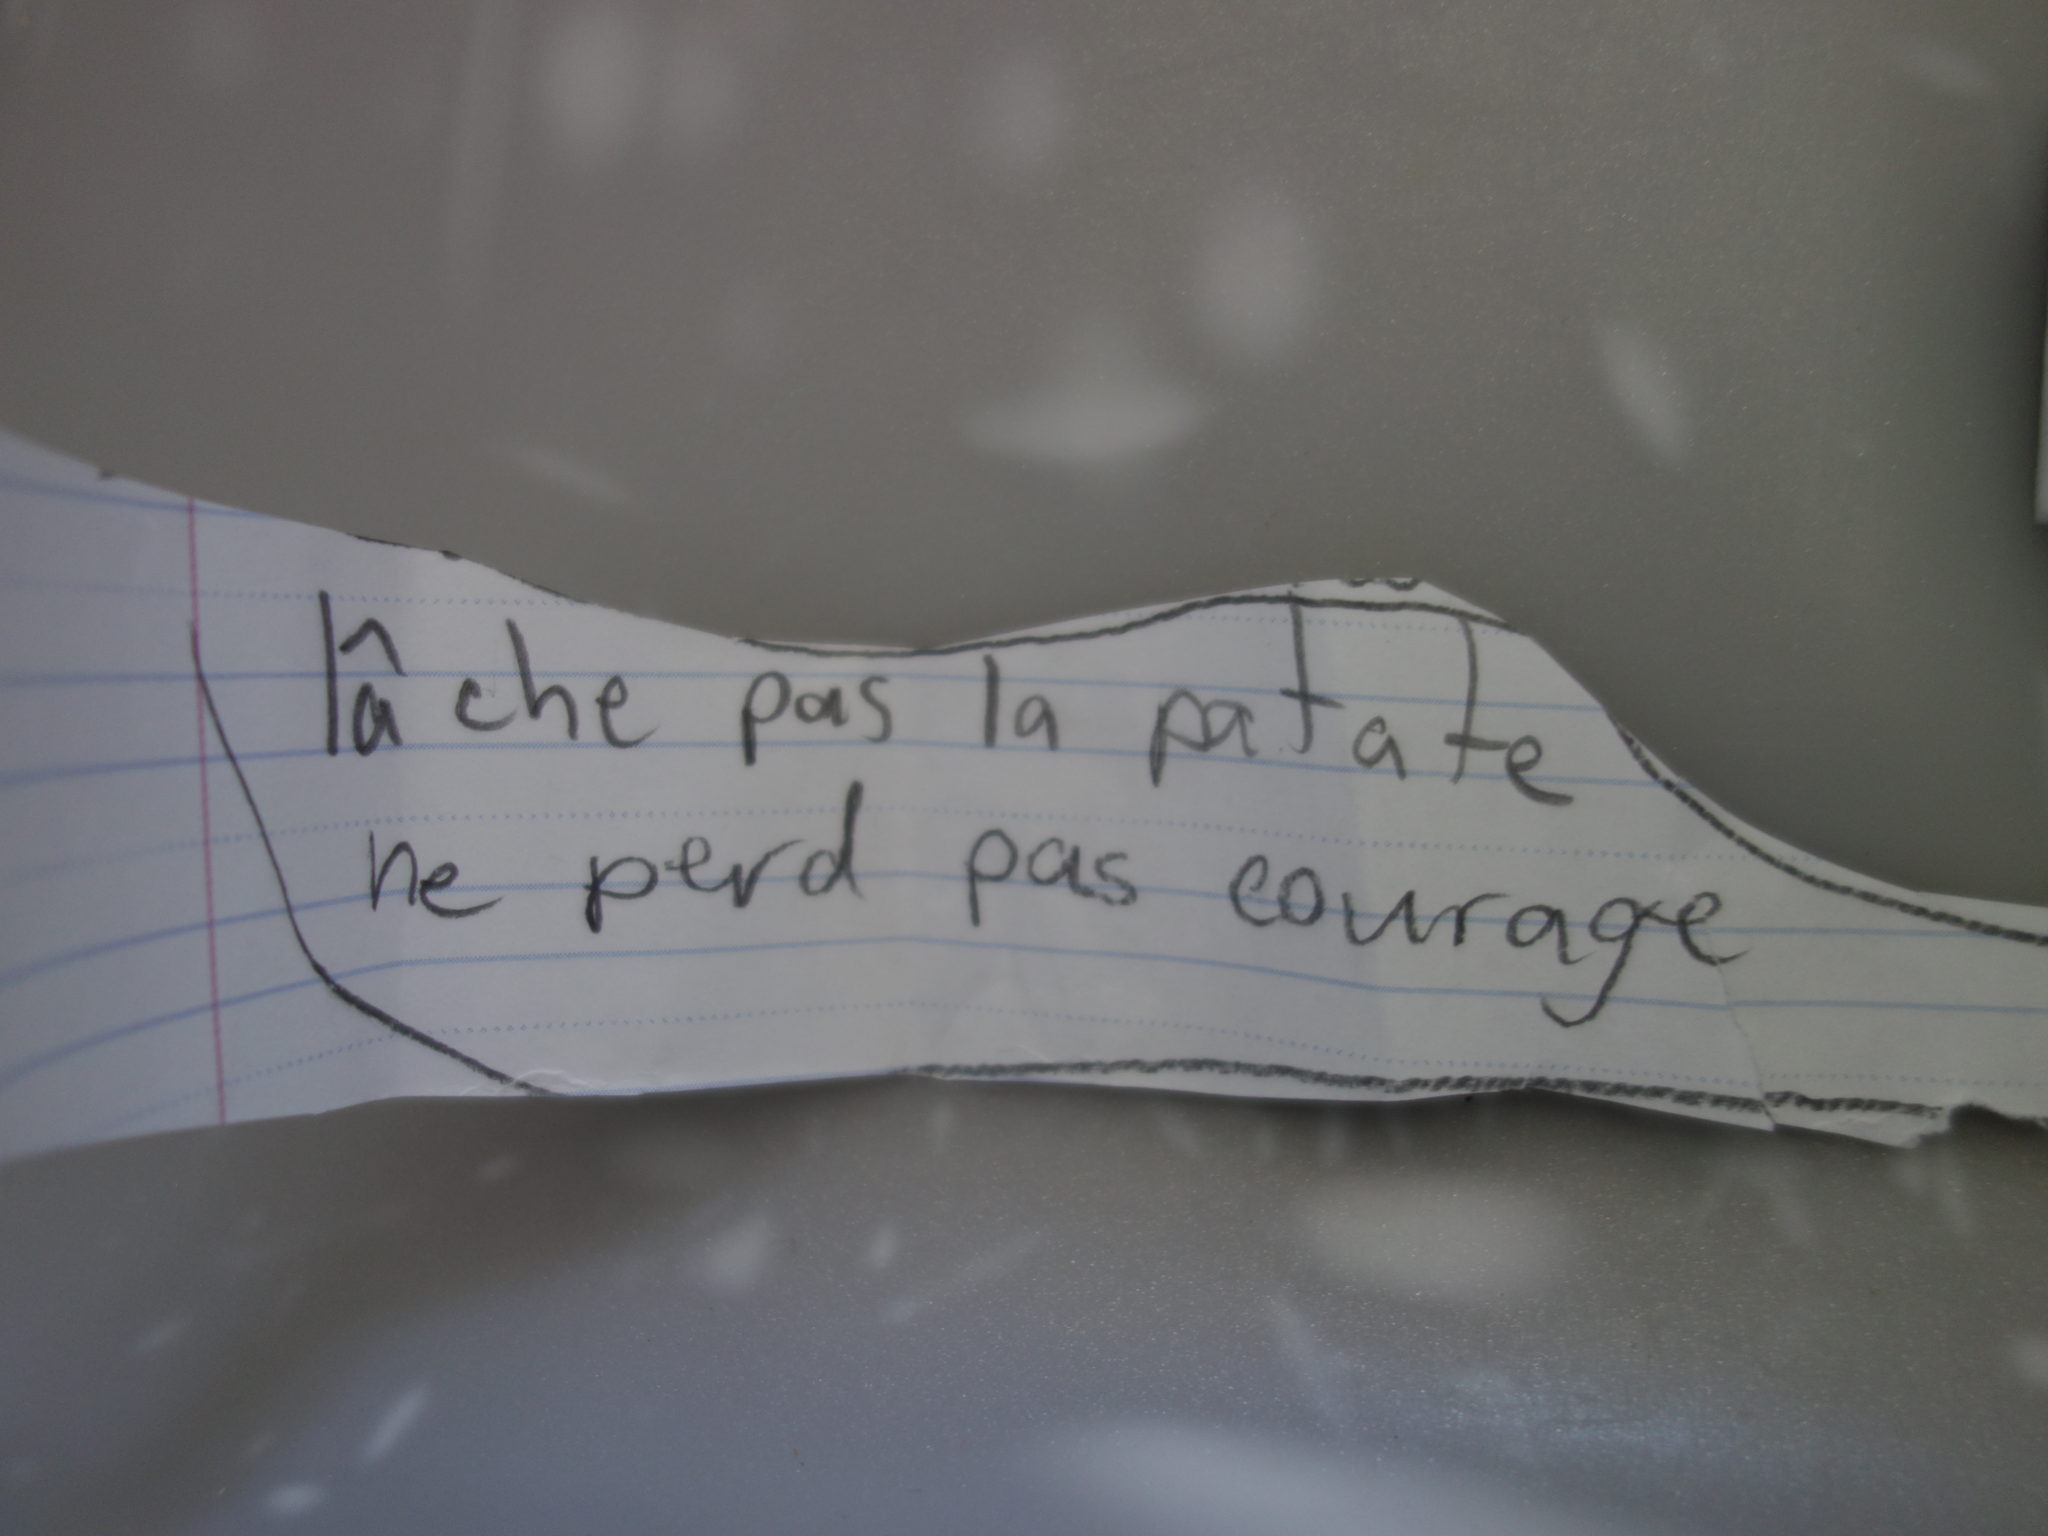 lâche pas la patate
ne perd pas courage